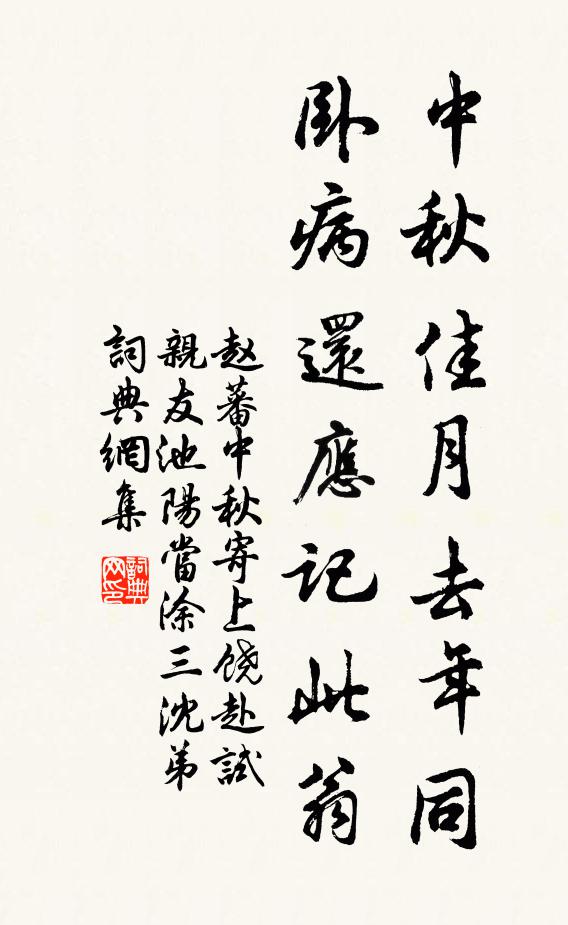 中秋佳月去年同
卧病還應記此翁
赵蕃中秋寄上饶赴試
親友池陽當涂三沈弟
詞典網集
詞典网印